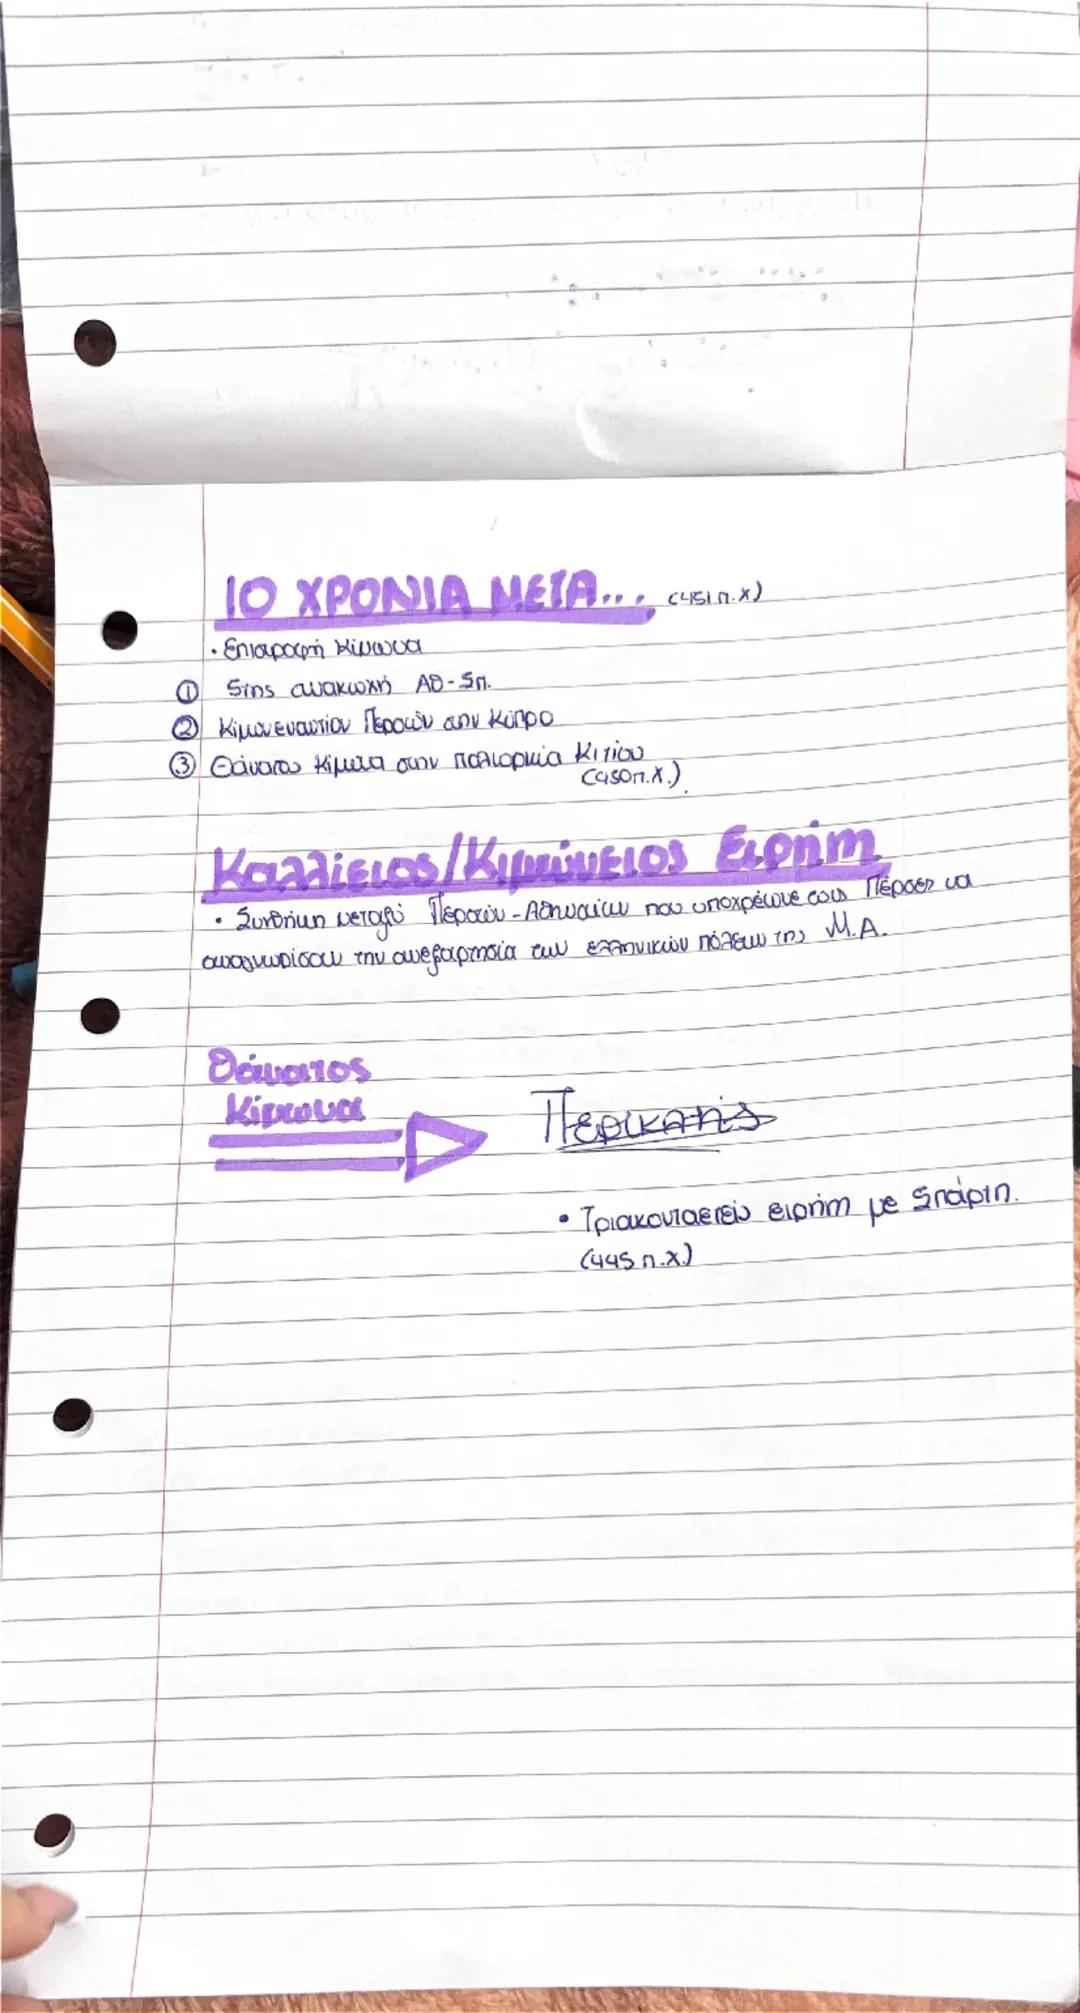 10 ΧΡΟΝΙΑ ΜΕΤΑ... (451 π.Χ)
• Επιστροφή Κίμωνα
① 5της ανακωχή ΑΘ-Σπ.
② Κίμων εναντίον Περσών στην Κύπρο
③ Θάνατος Κίμωνα στην πολιορκία Κιτίου
(450π.Χ.)
Καλλίειος/Κιμώνειος Ειρήνη
• Συνθήκη μεταξύ Περσών-Αθηναίων που υποχρέωνε τους Πέρσες να
αναγνωρίσουν την ανεξαρτησία των ελληνικών πόλεων της Μ.Α.
Θάνατος
Κίμωνα
Περικλής
• Τριακονταετείς ειρήνη με Σπάρτη.
(445 π.Χ.)